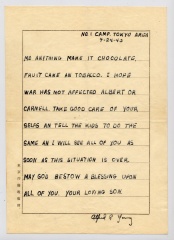 NO 1 CAMP. TOKYO AREA
9-24-43
ME ANYTHING MAKE IT CHOCOLATE,
FRUIT CAKE AN TOBACCO. I HOPE
WAR HAS NOT AFFECTED ALBERT OR
CARNELL. TAKE GOOD CARE OF YOUR
SELFS AN TELL THE KIDS TO DO THE
SAME AN I WILL SEE ALL OF YOU AS
SOON AS THIS SITUATION IS OVER.
MAY GOD BESTOW A BLESSING UPON
ALL OF YOU. YOUR LOVING SON
Young